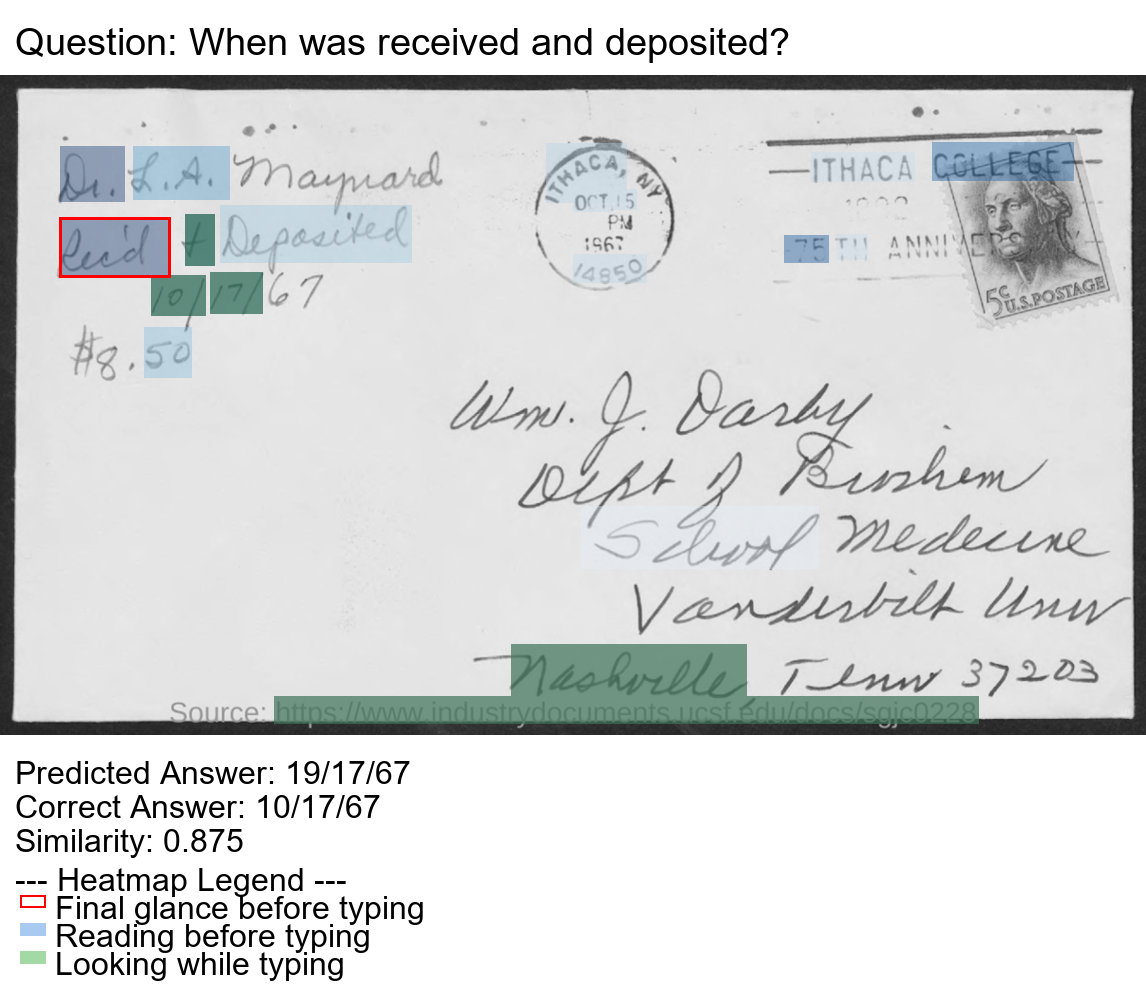 Question: When was received and deposited?
Dr. L.A. Maynard
Rec'd + Deposited
10/17/67
$8.50
ITHACA, NY
OCT 15
PM
1967
14850
ITHACA COLLEGE
75TH ANNIVERS
5¢ U.S. POSTAGE
Wm. J. Darby
Dept of Biochem
School Medecine
Vanderbilt Univ
Nashville, Tenn 37203
Source: https://www.industrydocuments.ucsf.edu/docs/sgjc0228
Predicted Answer: 19/17/67
Correct Answer: 10/17/67
Similarity: 0.875
--- Heatmap Legend ---
Final glance before typing
Reading before typing
Looking while typing